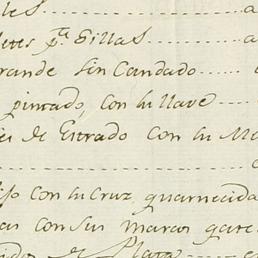 les
etes p.ᵃ Sillas
rande sin Candado
pintado con su llave
es de Estrado con su Ma
a
ijo con su Cruz, guarnecida
as con sus marcos
Plata